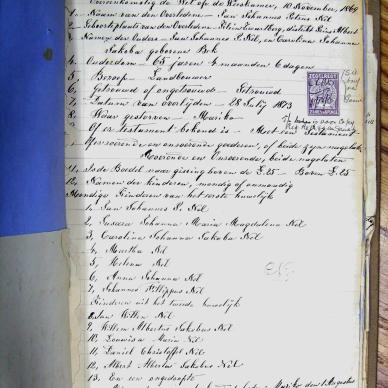 Overeenkomstig de Wet op de Weeskamer, 10 November, 1869
1. Naam van den Overleden - Jan Johannes Petrus Nel
2. Geboorteplaats van den Overleden - distrikt Prins Albert
Namen der Ouders - Jan Johannes P. Nel, en Carolina Johanna
Jakoba geborene Bok
4. Ouderdom - 65 jaren 4 maanden 6 dagen
5. Beroep - Landbouwer
6. Getrouwd of ongetrouwd - Getrouwd
7. Datum van overlijden - 28 July 1873
8. Waar gestorven - Mariko
9. Of er testament bekend is - Met een Testament
10. Of roerende en onroerende goederen, of beide zijn nagelaten
Roerende en Onroerende, beide nagelaten
11. Is de Boedel naar gissing boven de £.25 - Boven £.25
12. Namen der kinderen, mondig of onmondig
Mondige Kinderen van het eerste huwelijk
1. Jan Johannes P. Nel
2. Susara Johanna Maria Magdalena Nel
3. Carolina Johanna Jakoba Nel
4. Martha Nel
5. Helena Nel
6. Anna Johanna Nel
7. Johannes Philippus Nel
Kinderen uit het tweede huwelijk
8. Jan Willem Nel
9. Willem Albertus Jakobus Nel
10. Louwisa Maria Nel
11. Daniel Christoffel Nel
12. Albert Albertus Jakobus Nel
13. En een ongedoopte
Mariko den 1 Augustus
ZEGELREGT